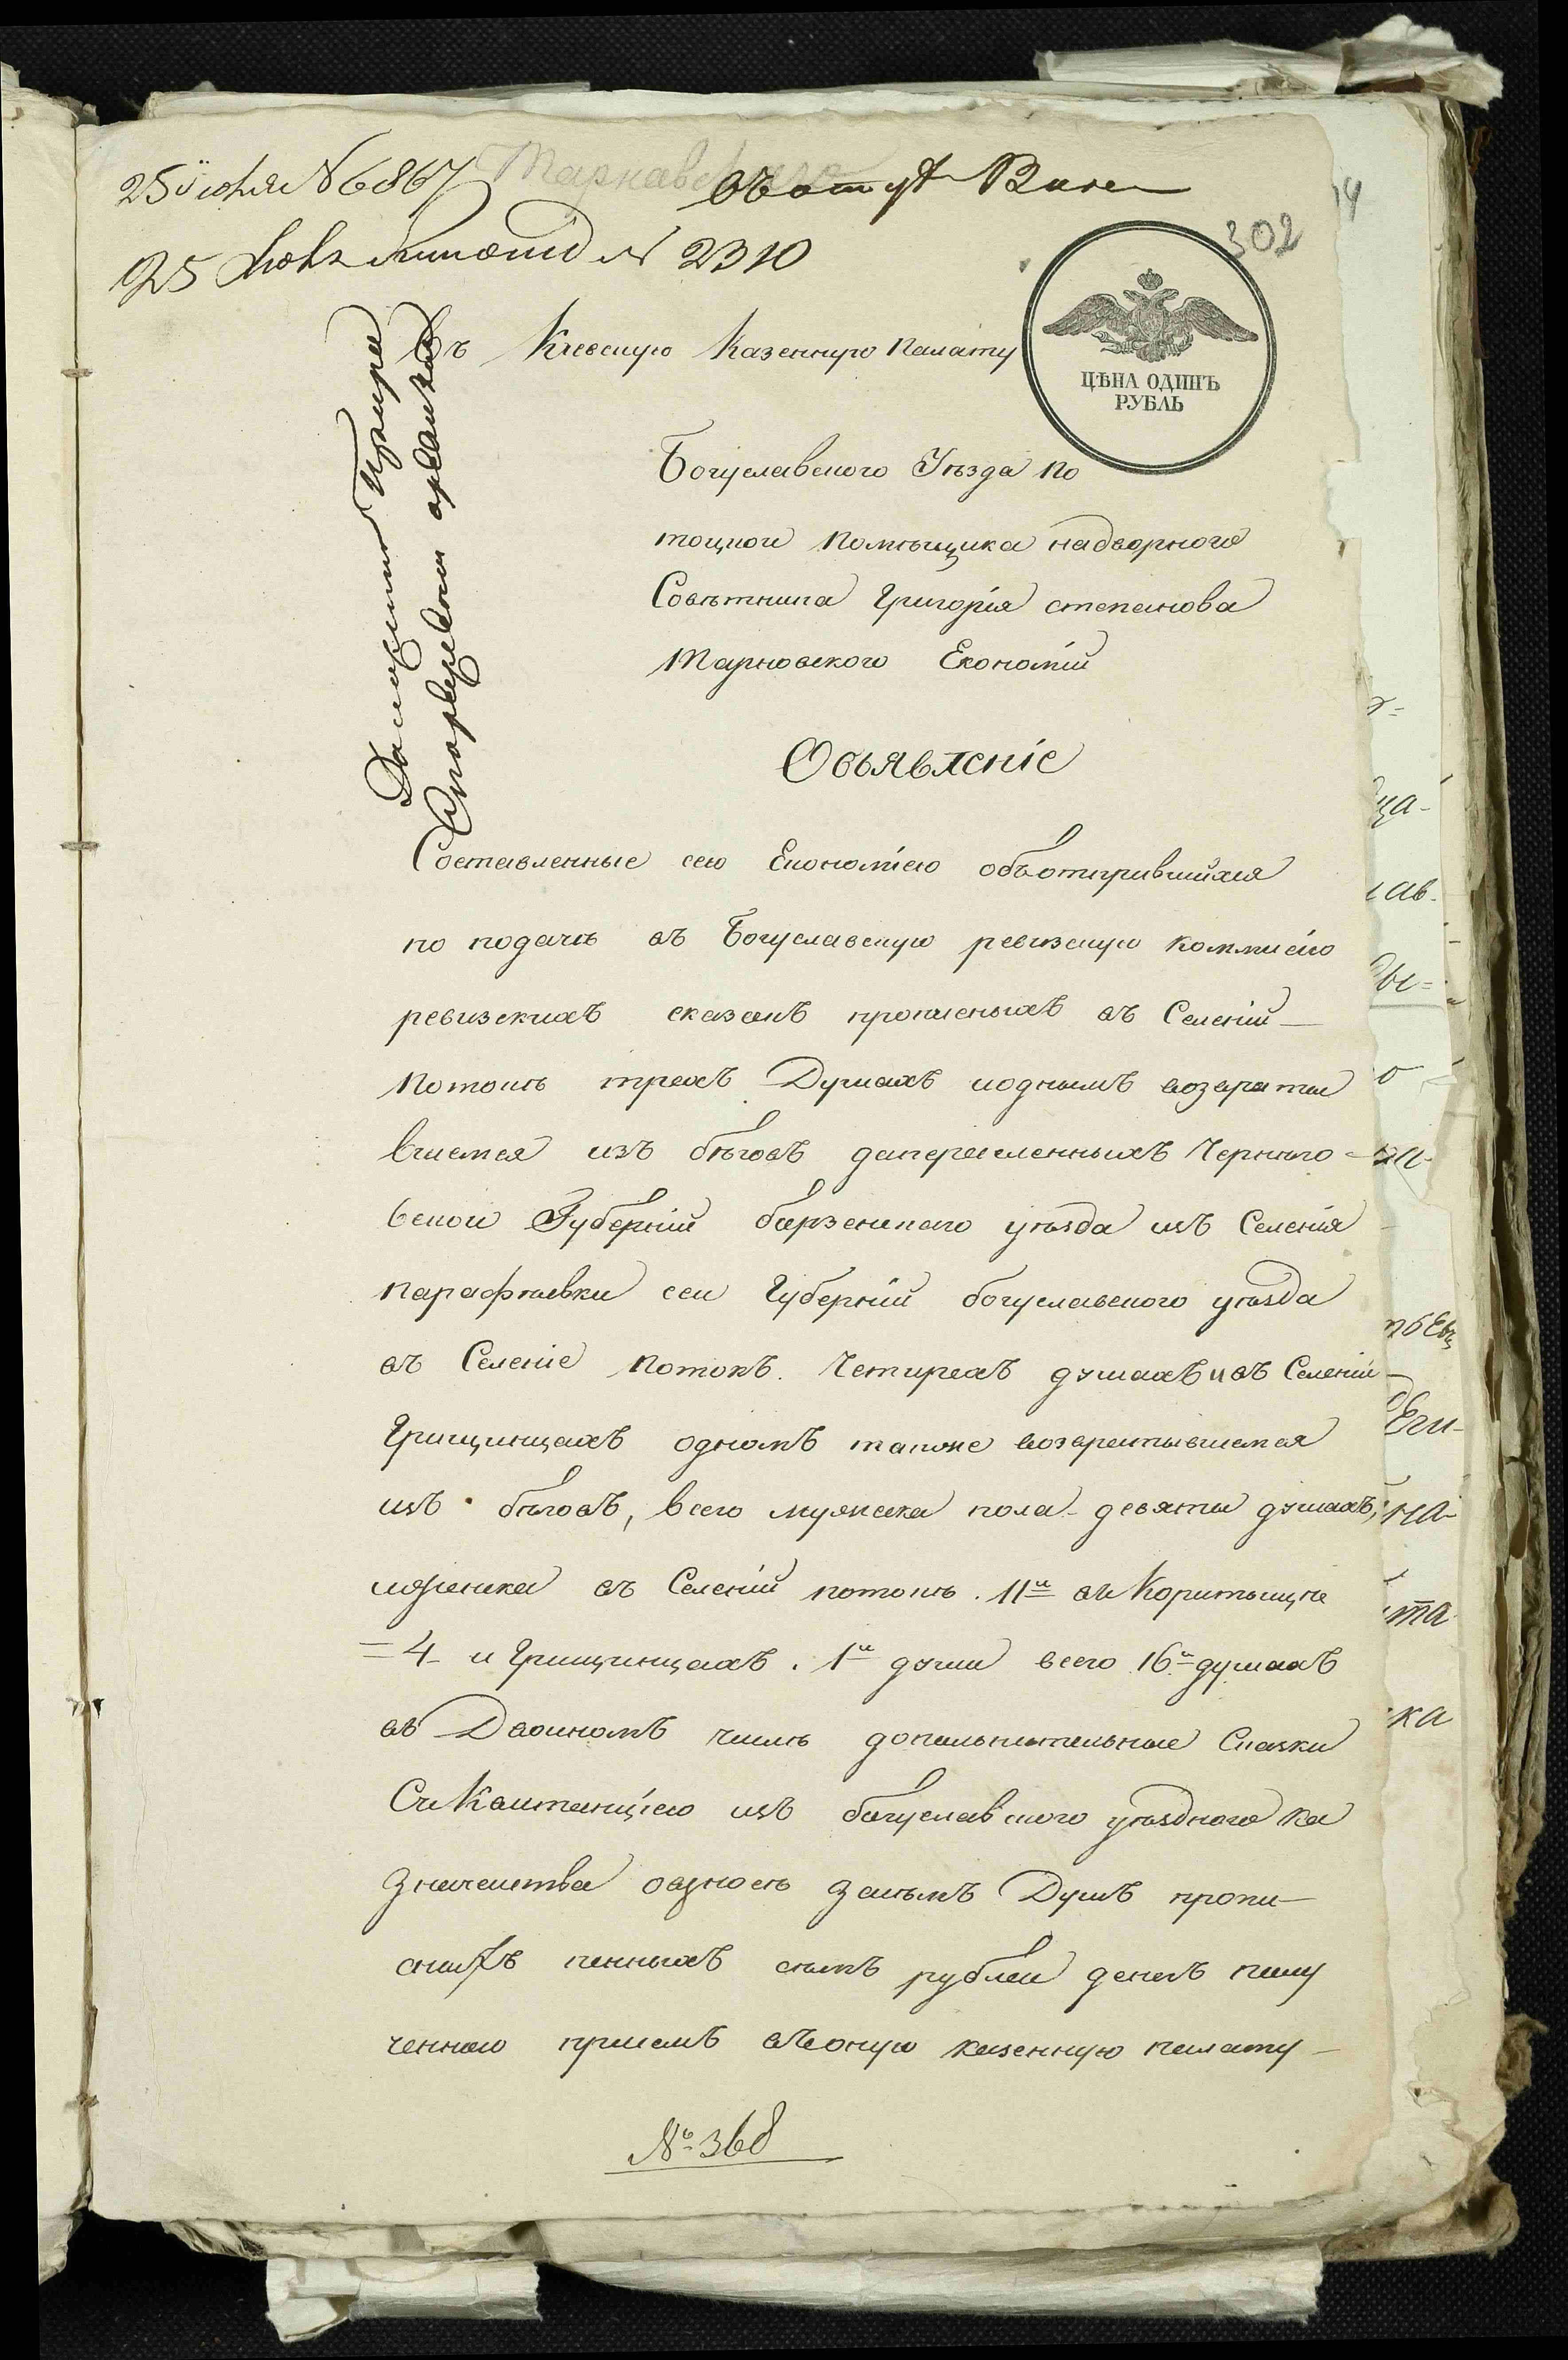 25 июня № 6867
Тарнавского
25 № 2310
302
Въ Киевскую Казенную Палату
ЦѢНА ОДИНЪ
РУБЛЬ
Богуславского Уѣзда по
тоцкои помѣщика надворного
Совѣтника Григорія степанова
Тарновского Економіи
Объявленіе
Составленные сею Економіею объоткрившихся
по подачѣ въ Богуславскую ревизскую коммисію
ревизскихъ сказакъ прописныхъ въ Селеніи
Потокѣ трехъ Душахъ иоднымъ возврати
вшемся изъ бѣговъ Чернѣго=
вской Губерніи борзенского уѣзда изъ Селенія
парафіевки сеи Губерніи богуславского уѣзда
въ Селеніе Потокъ. Четирехъ душахъ и въ Селеніи
Грищинцахъ одномъ также возвратившемся
изъ бѣговъ, всего мужска пола девяти душахъ,
и женска въ Селеніи потокѣ. 11и въ Коритыщѣ
=4 и Грищинцахъ. 1и души всего 16и душахъ
въ Двоиномъ числѣ дополнительные Сказки
Съ Квитанціею изъ богуславского уѣздного Ка
значеиства Душъ пропи
рублеи денегъ
въ оную казенную палату
№ 368